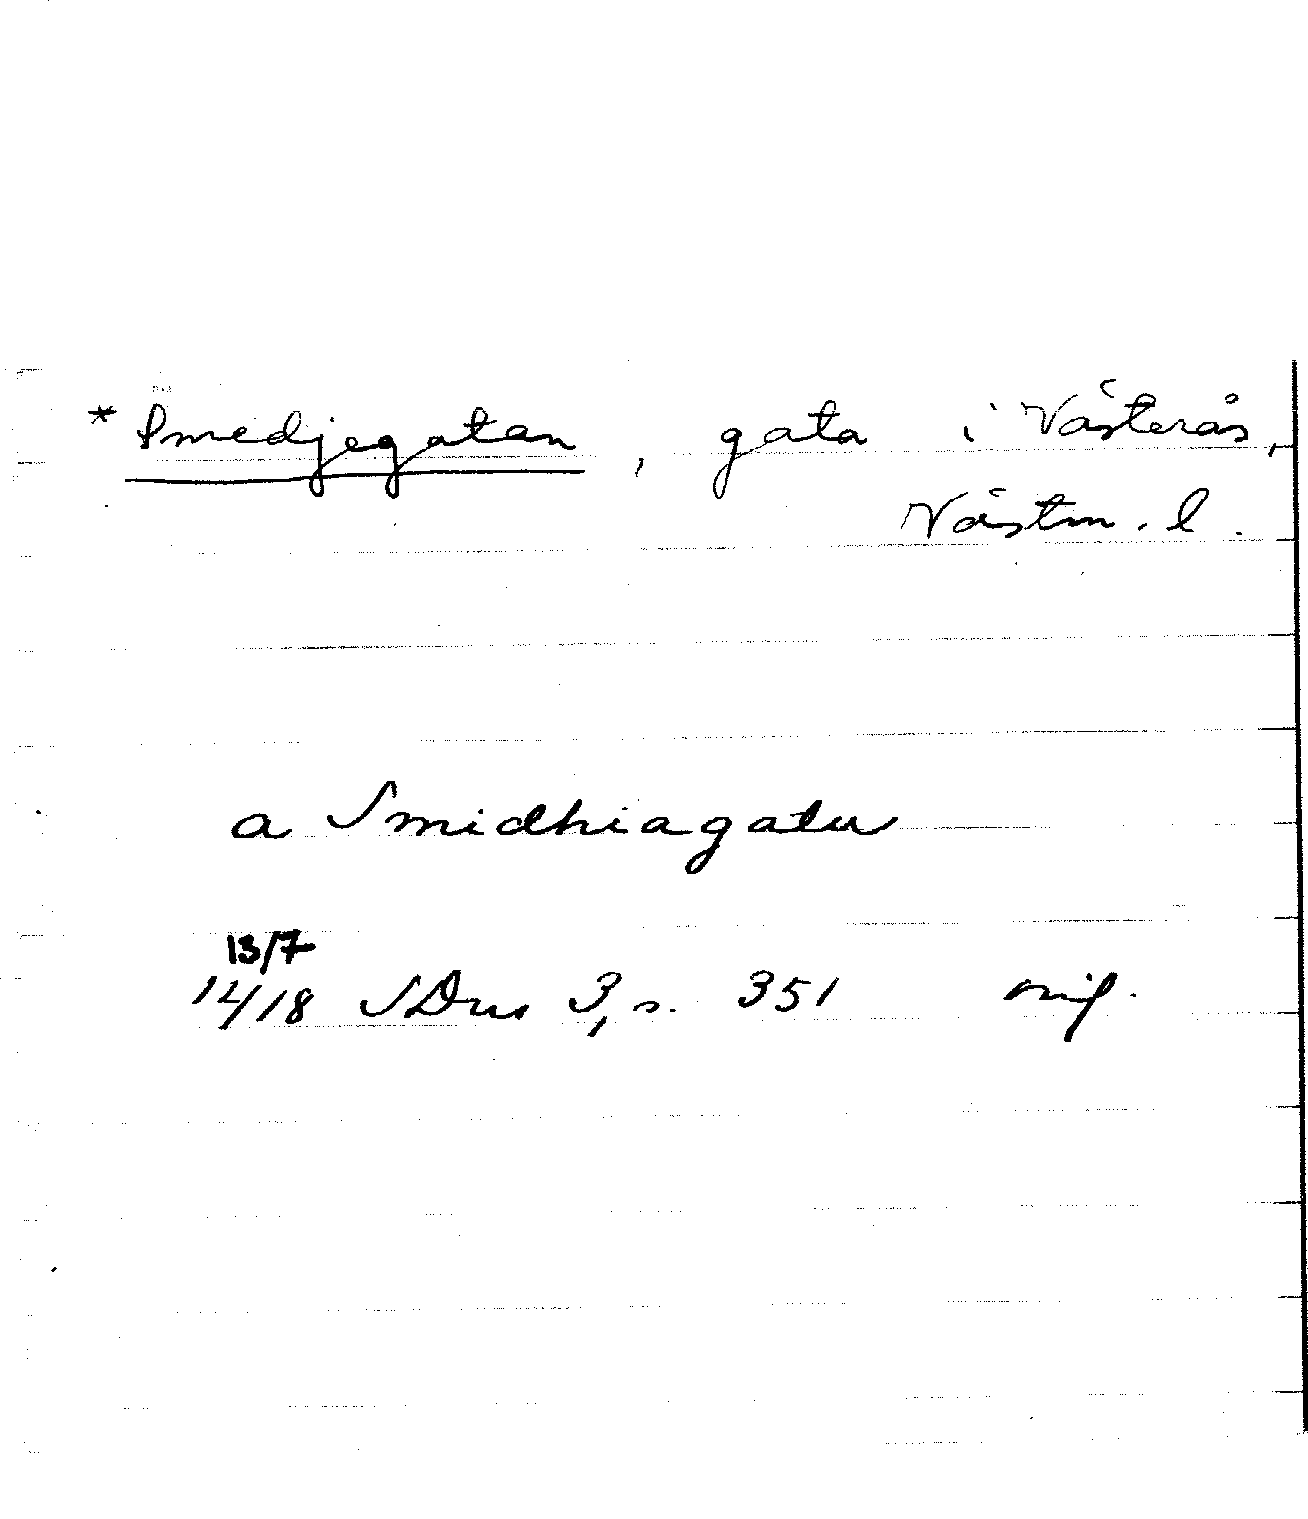 * Smedjegatan, gata i Västerås,
Västm. l.
a Smidhiagatu
13/7
14/18 SDns 3, s. 351 orig.